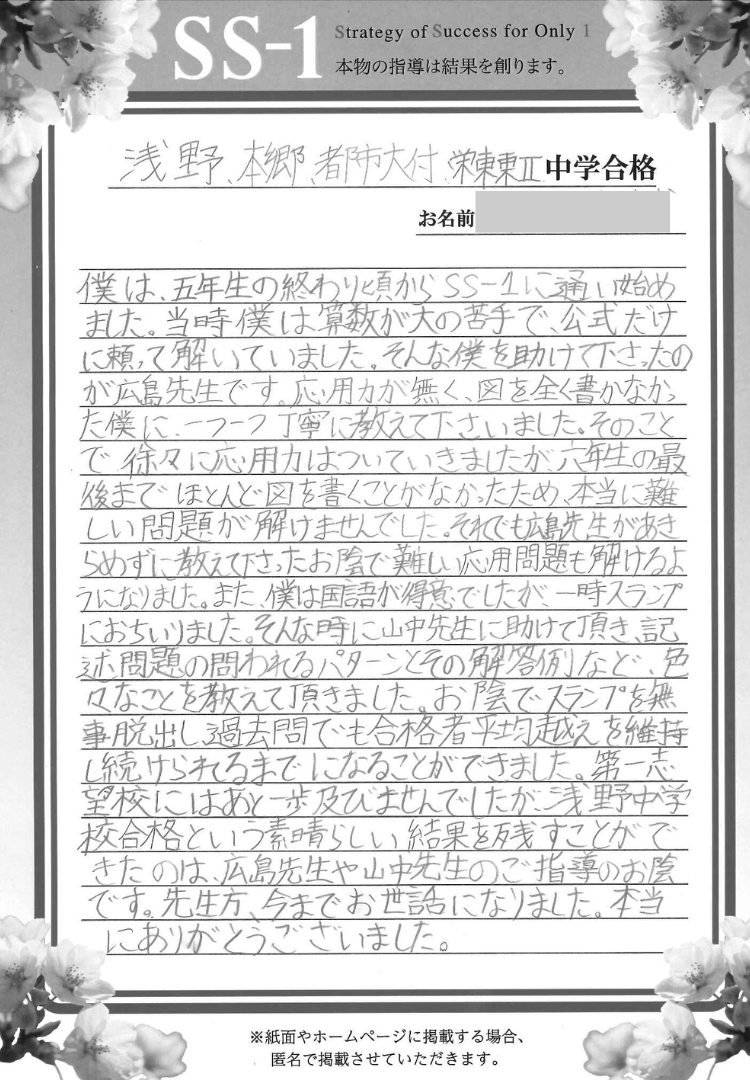 SS-1
Strategy of Success for Only 1
本物の指導は結果を創ります。
浅野、本郷、都市大付、栄東東Ⅱ 中学合格
お名前
僕は、五年生の終わり頃からSS-1に通い始め
ました。当時僕は算数が大の苦手で、公式だけ
に頼って解いていました。そんな僕を助けて下さったの
が広島先生です。応用力が無く、図を全く書かなかっ
た僕に、一つ一つ丁寧に教えて下さいました。そのこと
で徐々に応用力はついていきましたが、六年生の最
後までほとんど図を書くことがなかったため、本当に難
しい問題が解けませんでした。それでも広島先生があき
らめずに教えて下さったお陰で難しい応用問題も解けるよ
うになりました。また、僕は国語が得意でしたが、一時スランプ
におちいりました。そんな時に山中先生に助けて頂き、記
述問題の問われるパターンとその解答例など、色
々なことを教えて頂きました。お陰でスランプを無
事脱出し、過去問でも合格者平均越えを維持
し続けられてるまでになることができました。第一志
望校にはあと一歩及びませんでしたが、浅野中学
校合格という素晴らしい結果を残すことがで
きたのは、広島先生や山中先生のご指導のお陰
です。先生方、今までお世話になりました。本当
にありがとうございました。
※紙面やホームページに掲載する場合、
匿名で掲載させていただきます。